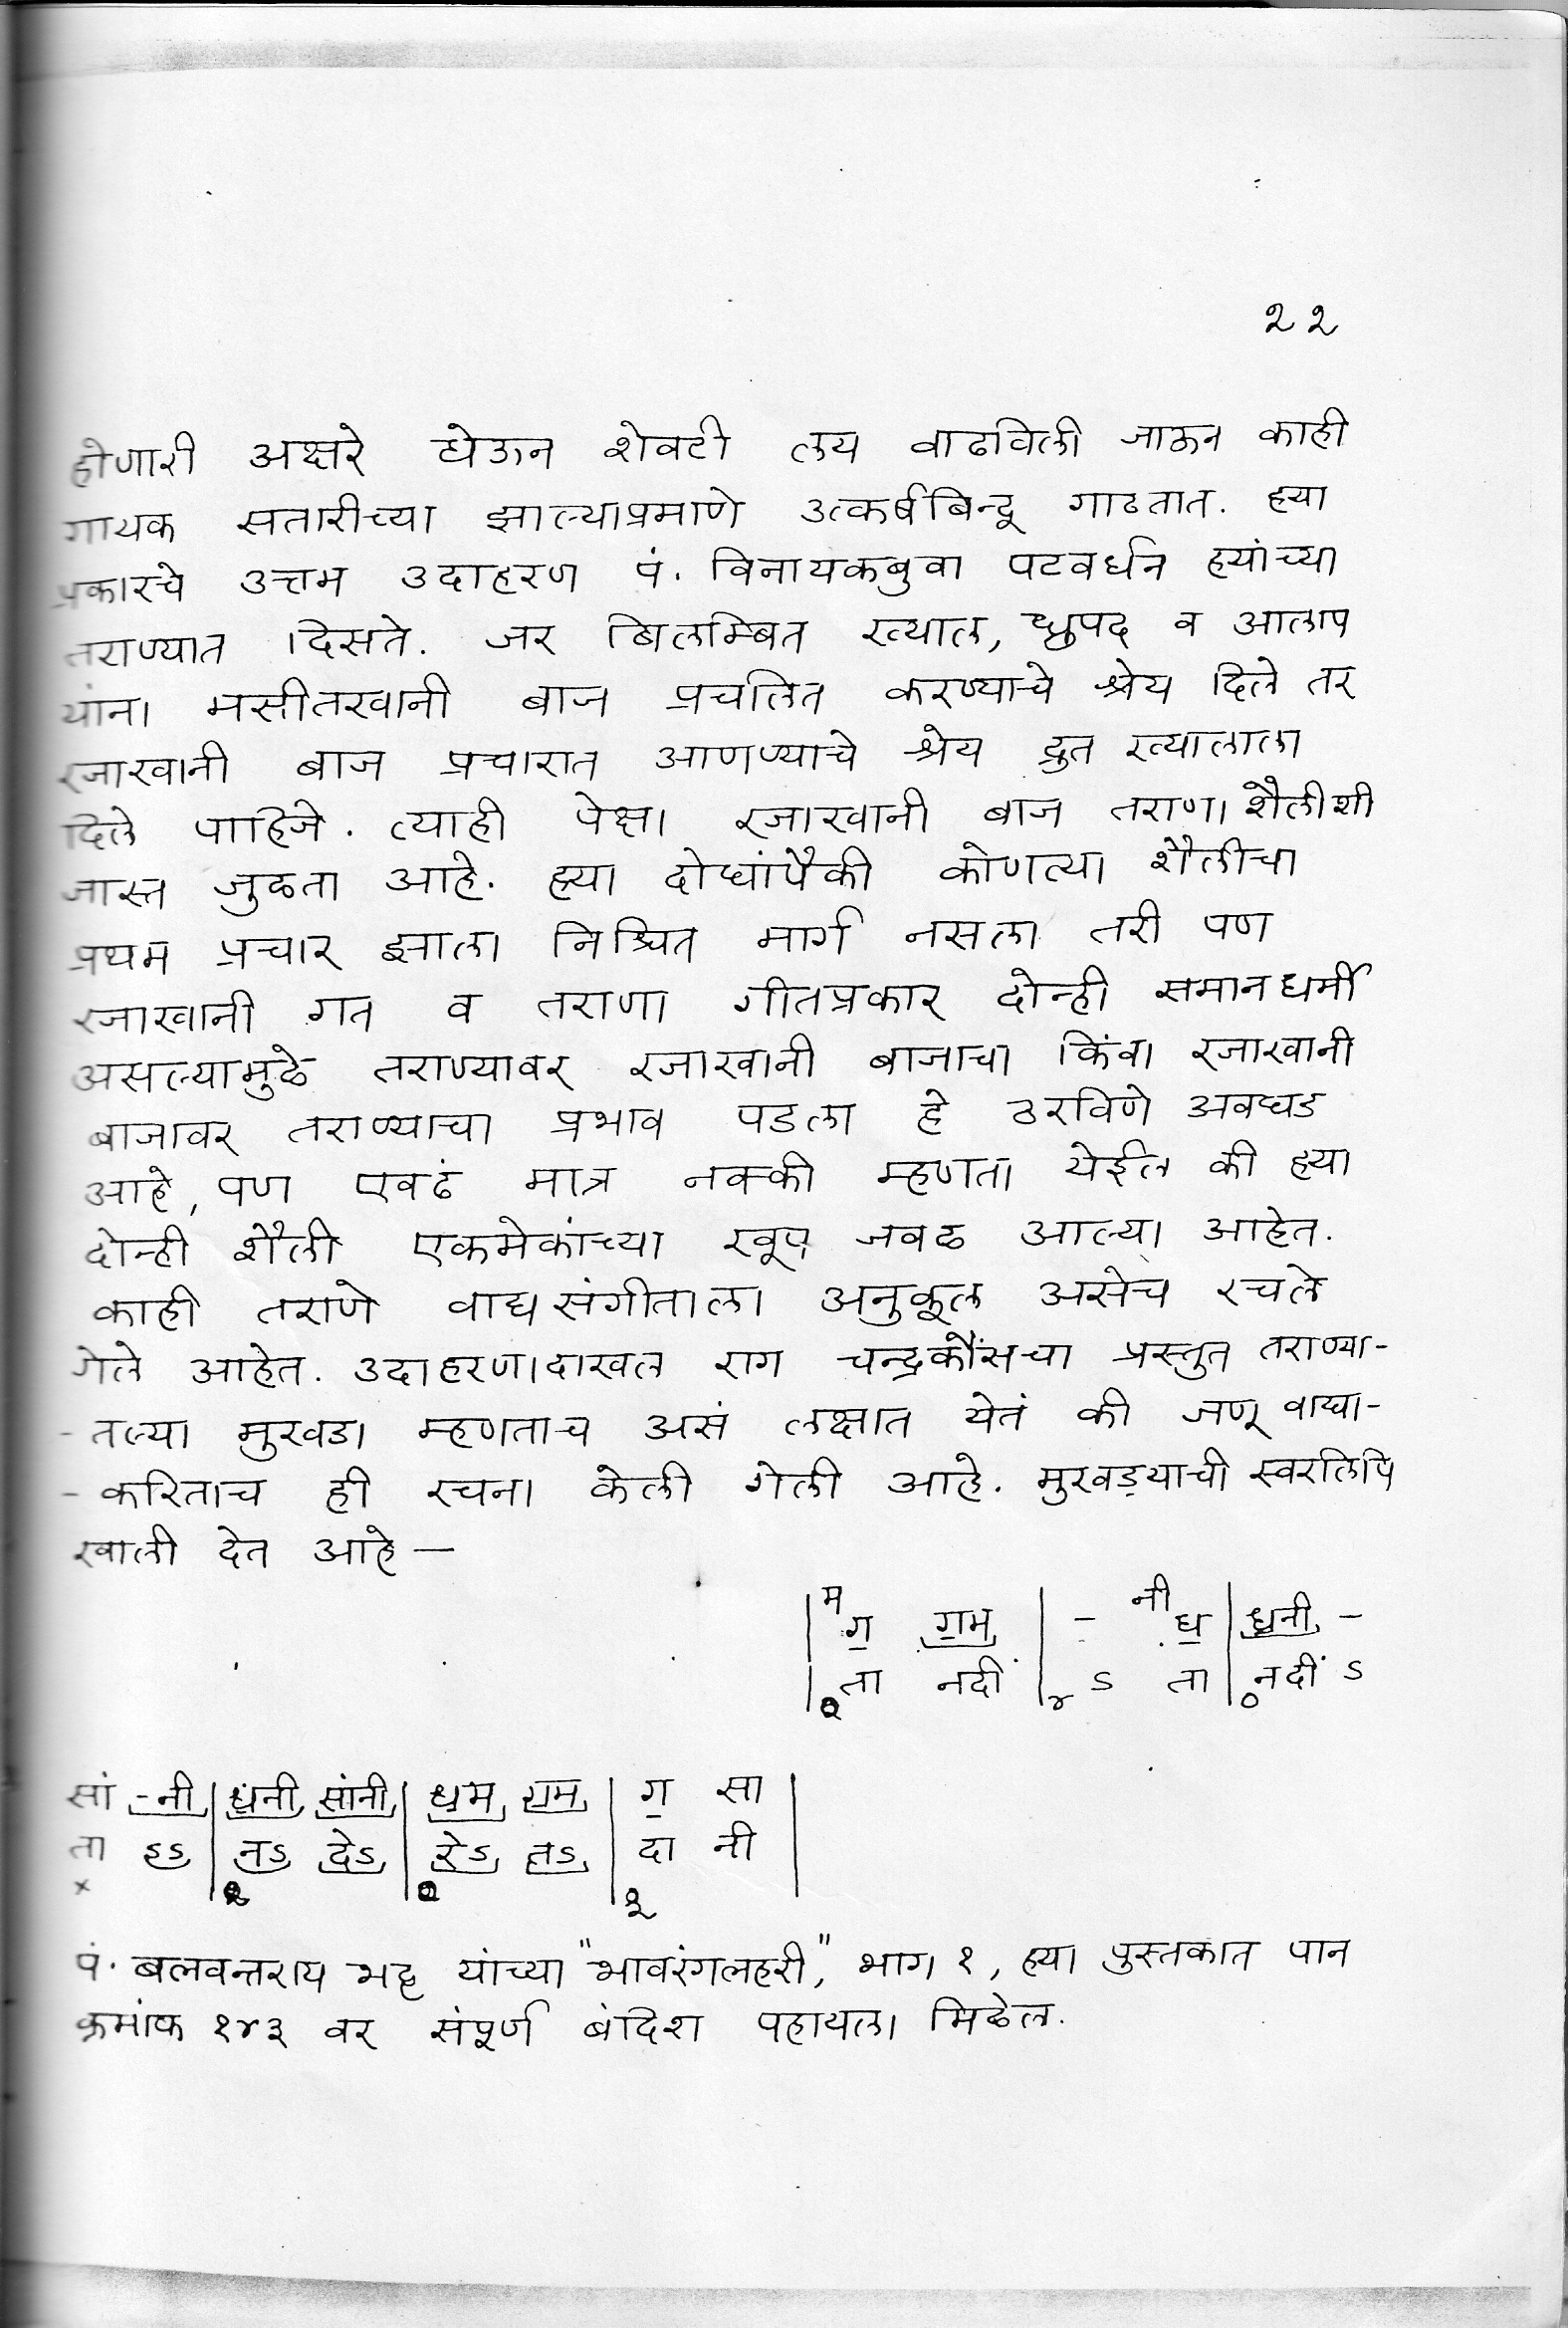 २२
होणारी अक्षरे घेऊन शेवटी लय वाढविली जाऊन काही
गायक सतारीच्या झाल्याप्रमाणे उत्कर्षबिन्दू गाठतात. ह्या
प्रकारचे उत्तम उदाहरण पं. विनायकबुवा पटवर्धन ह्यांच्या
तराण्यात दिसते. जर बिलम्बित ख्याल, ध्रुपद व आलाप
यांना मसीतखानी बाज प्रचलित करण्याचे श्रेय दिले तर
रजाखानी बाज प्रचारात आणण्याचे श्रेय द्रुत ख्यालाला
दिले पाहिजे. त्याही पेक्षा रजाखानी बाज तराणा शैलीशी
जास्त जुळता आहे. ह्या दोघांपैकी कोणत्या शैलीचा
प्रथम प्रचार झाला निश्चित मार्ग नसला तरी पण
रजाखानी गत व तराणा गीतप्रकार दोन्ही समानधर्मी
असल्यामुळे तराण्यावर रजाखानी बाजाचा किंवा रजाखानी
बाजावर तराण्याचा प्रभाव पडला हे ठरविणे अवघड
आहे, पण एवढं मात्र नक्की म्हणता येईल की ह्या
दोन्ही शैली एकमेकांच्या खूप जवळ आल्या आहेत.
काही तराणे वाद्यसंगीताला अनुकूल असेच रचले
गेले आहेत. उदाहरणादाखल राग चन्द्रकौंसचा प्रस्तुत तराण्या-
- तल्या मुखडा म्हणताच असं लक्षात येतं की जणू वाद्या-
- करिताच ही रचना केली गेली आहे. मुखड्याची स्वरलिपि
खाली देत आहे —
| म ग॒ ग॒म | - नी ध॒ | ध॒नी -
| ता नदीं | ऽ ता | नदीं ऽ
० ४ ०
सां -नी | ध॒नी सांनी | ध॒म ग॒म | ग॒ सा |
ता ऽऽ | नऽ देऽ | रेऽ तऽ | दा नी |
× २ ० ३
पं. बलवन्तराय भट्ट यांच्या "भावरंगलहरी," भाग १, ह्या पुस्तकात पान
क्रमांक १४३ वर संपूर्ण बंदिश पहायला मिळेल.